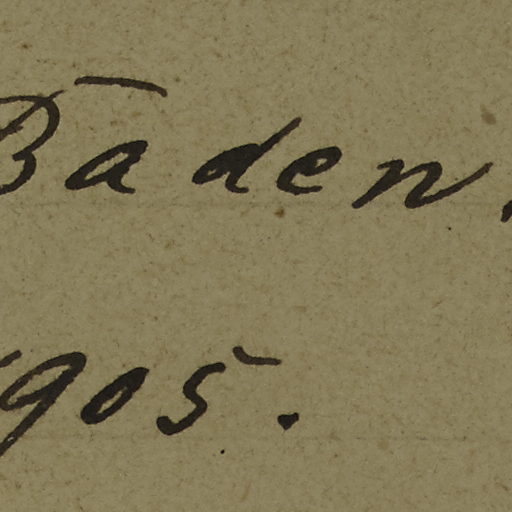 Baden.
1905.